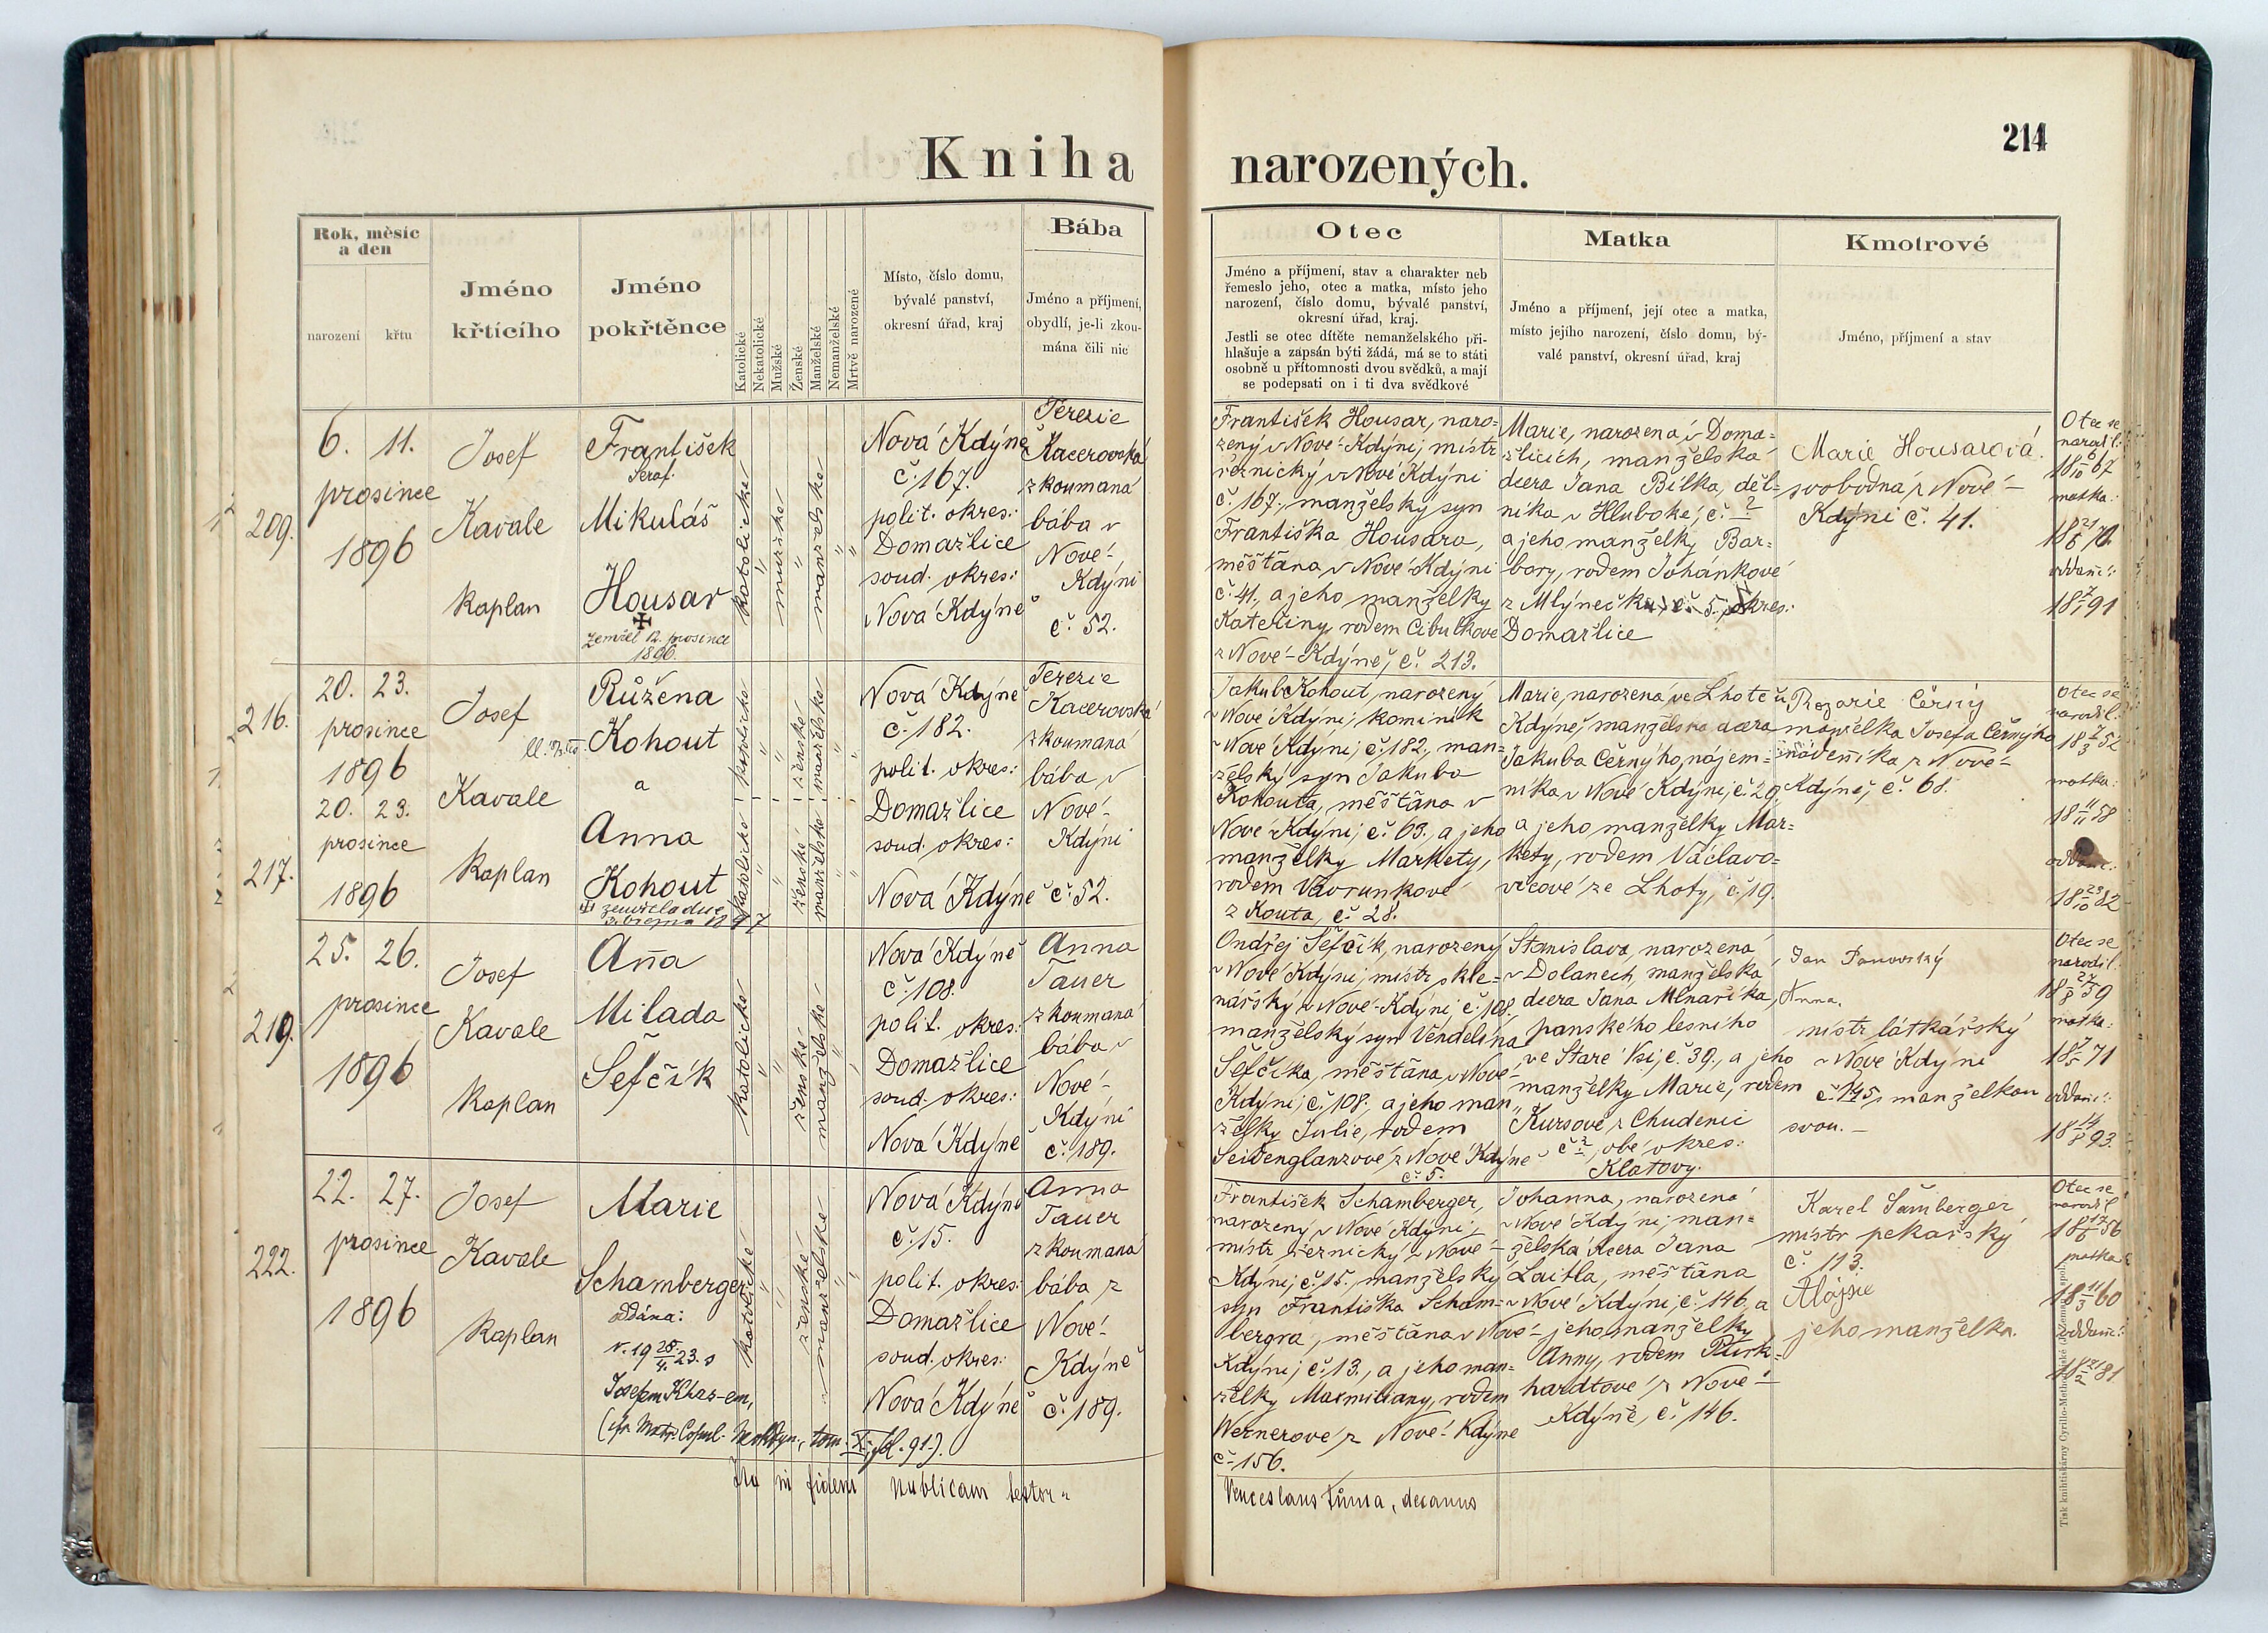 Kniha
narozených.
214
Rok, měsíc
a den
narození
křtu
Jméno
křtícího
Jméno
pokřtěnce
Katolické
Nekatolické
Mužské
Ženské
Manželské
Nemanželské
Mrtvě narozené
Místo, číslo domu,
bývalé panství,
okresní úřad, kraj
Bába
Jméno a příjmení,
obydlí, je-li zkou-
mána čili nic
Otec
Jméno a příjmení, stav a charakter neb
řemeslo jeho, otec a matka, místo jeho
narození, číslo domu, bývalé panství,
okresní úřad, kraj.
Jestli se otec dítěte nemanželského při-
hlašuje a zapsán býti žádá, má se to státi
osobně u přítomnosti dvou svědků, a mají
se podepsati on i ti dva svědkové
Matka
Jméno a příjmení, její otec a matka,
místo jejího narození, číslo domu, bý-
valé panství, okresní úřad, kraj
Kmotrové
Jméno, příjmení a stav
209.
6. 11.
prosince
1896
Josef
Kavale
kaplan
František
Seraf.
Mikuláš
Housar
zemřel 12. prosince
1896.
katolické
mužské
manželské
Nová Kdýně
č. 167.
polit. okres:
Domažlice
soud. okres:
Nová Kdýně
Terezie
Kacerovská
zkoumaná
bába v
Nové-
Kdýni
č. 52.
František Housar, naro-
zený v Nové-Kdýni, mistr
řeznický v Nové Kdýni
č. 167., manželský syn
Františka Housara,
měšťana v Nové Kdýni
č. 41., a jeho manželky
Kateřiny, rodem Cibulkové
z Nové-Kdýně, č. 213.
Marie, narozená v Doma-
žlicích, manželská
dcera Jana Bílka, děl-
níka v Hluboké, č. ?
a jeho manželky Bar-
bory, rodem Johánkové
z Mlýnečku, č. 5. okres:
Domažlice
Marie Housarová
svobodná z Nové-
Kdýni č. 41.
Otec se
narodil:
18 6/10 67
matka:
oddaní:
216.
20. 23.
prosince
1896
Josef
Kavale
kaplan
Růžena
Kohout
a
katolické
ženské
manželské
217.
20. 23.
prosince
1896
Anna
Kohout
zemřela dne
katolické
ženské
manželské
Nová Kdýně
č. 182.
polit. okres:
Domažlice
soud. okres:
Nová Kdýně
Terezie
Kacerovská
zkoumaná
bába v
Nové-
Kdýni
č. 52.
Jakub Kohout, narozený
v Nové Kdýni, kominík
v Nové Kdýni, č. 182., man-
želský syn Jakuba
Kohouta, měšťana v
Nové Kdýni, č. 63., a jeho
manželky Markety,
rodem Vavrunkové
z Kouta, č. 28.
Marie, narozená ve Lhotě u
Kdýně, manželská dcera
Jakuba Černýho, nájem-
níka v Nové Kdýni, č. 29.,
a jeho manželky Mar-
kety, rodem Václavo-
vicové ze Lhoty, č. 19.
Rozarie Černý
manželka Josefa Černýho
nádenníka z Nové-
Kdýně, č. 68.
Otec se
narodil:
matka:
18 11/11 58
oddaní:
18 29/10 82
219.
25. 26.
prosince
1896
Josef
Kavale
kaplan
Anna
Milada
Šefčík
katolické
ženské
manželské
Nová Kdýně
č. 108.
polit. okres:
Domažlice
soud. okres:
Nová Kdýně
Anna
Tauer
zkoumaná
bába v
Nové-
Kdýni
č. 189.
Ondřej Šefčík, narozený
v Nové Kdýni, mistr skle-
nářský v Nové-Kdýni, č. 108.,
manželský syn Vendelína
Šefčíka, měšťana v Nové-
Kdýni, č. 108., a jeho man-
želky Julie, rodem
Seidenglanzové z Nové Kdýně
č. 5.
Stanislava, narozená
v Dolanech, manželská
dcera Jana Mlnaříka,
panského lesního
ve Staré Vsi, č. 39., a jeho
manželky Marie, rodem
Kursové z Chudenic
č. ?, obé okres:
Klatovy.
Jan Janovský
Anna.
mistr látkářský
v Nové Kdýni
č. 145, s manželkou
svou. -
Otec se
narodil:
18 27/8 59
matka:
oddaní:
18 14/8 93.
222.
22. 27.
prosince
1896
Josef
Kavale
kaplan
Marie
Schamberger
oddána:
r. 19 28/4. 23. s
katolické
ženské
manželské
Nová Kdýně
č. 15.
polit. okres:
Domažlice
soud. okres:
Nová Kdýně
Anna
Tauer
zkoumaná
bába z
Nové-
Kdýně
č. 189.
František Schamberger,
narozený v Nové Kdýni,
mistr řeznický v Nové-
Kdýni, č. 15., manželský
syn Františka Scham-
bergra, měšťana v Nové-
Kdýni, č. 13., a jeho man-
želky Maxmiliany, rodem
Wernerové z Nové Kdýně
č. 156.
Johanna, narozená
v Nové Kdýni, man-
želská dcera Jana
Laitla, měšťana
v Nové Kdýni, č. 146, a
jeho manželky
Anny, rodem
hardtové z Nové-
Kdýně, č. 146.
Karel Šamberger
mistr pekařský
č. 113.
Alojsie
jeho manželka.
Otec se
narodil
matka:
18 11/3 60
oddaní:
Ita in fidem publicam testor
Venceslaus Tůma, decanus